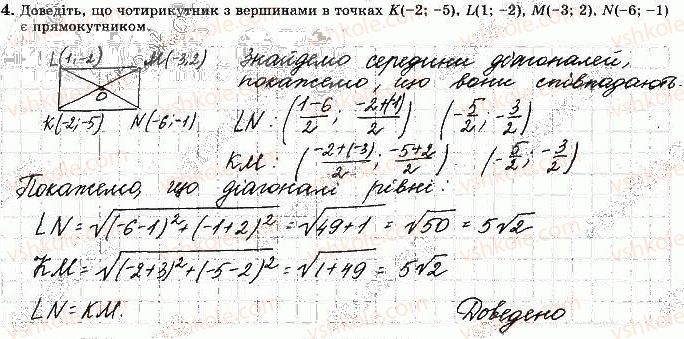 4. Доведіть, що чотирикутник з вершинами в точках K(−2; −5), L(1; −2), M(−3; 2), N(−6; −1)
є прямокутником.
L(1;-2) M(-3;2)
O
K(-2;-5) N(-6;-1)
Знайдемо середини діагоналей,
покажемо, що вони співпадають.
LN: (1-6/2; -2+(-1)/2) (-5/2; -3/2)
KM: (-2+(-3)/2; -5+2/2) (-5/2; -3/2)
Покажемо, що діагоналі рівні:
LN = √((-6-1)²+(-1+2)²) = √(49+1) = √50 = 5√2
KM = √((-2+3)²+(-5-2)²) = √(1+49) = 5√2
LN = KM. Доведено